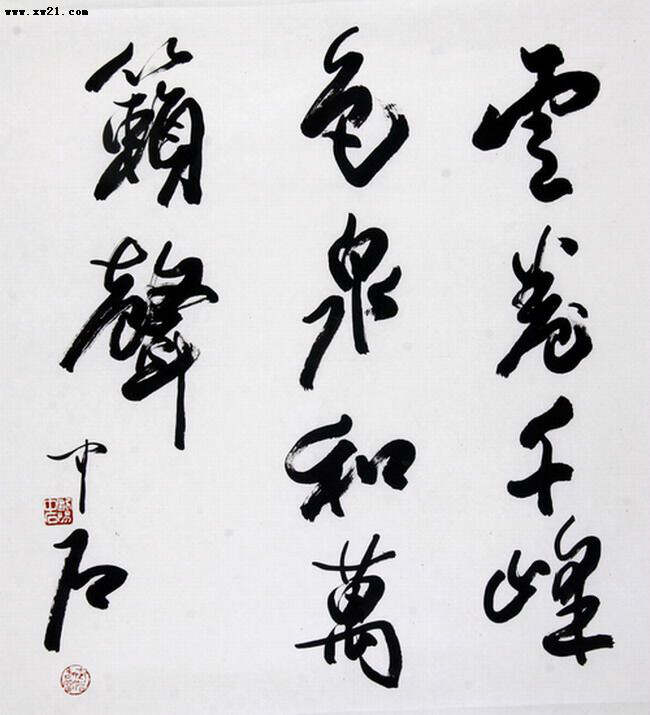 www.xw21.com
雲卷千峰
色泉和萬
籟聲
中石
歐陽中石